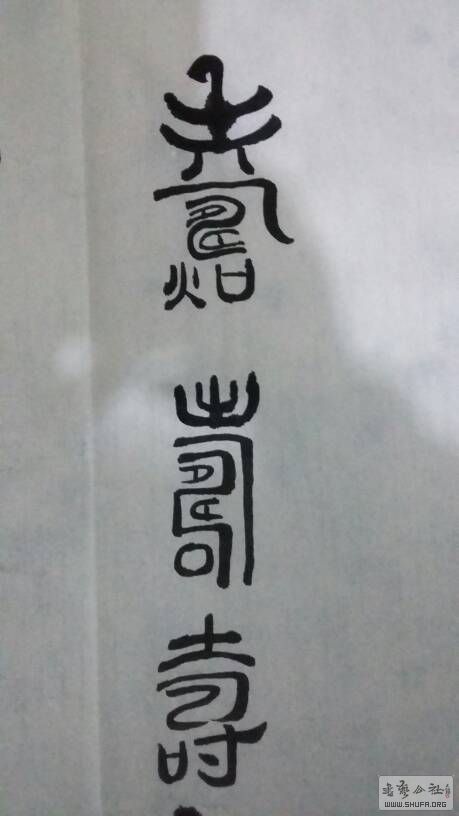 壽
壽
壽
书艺公社
WWW.SHUFA.ORG